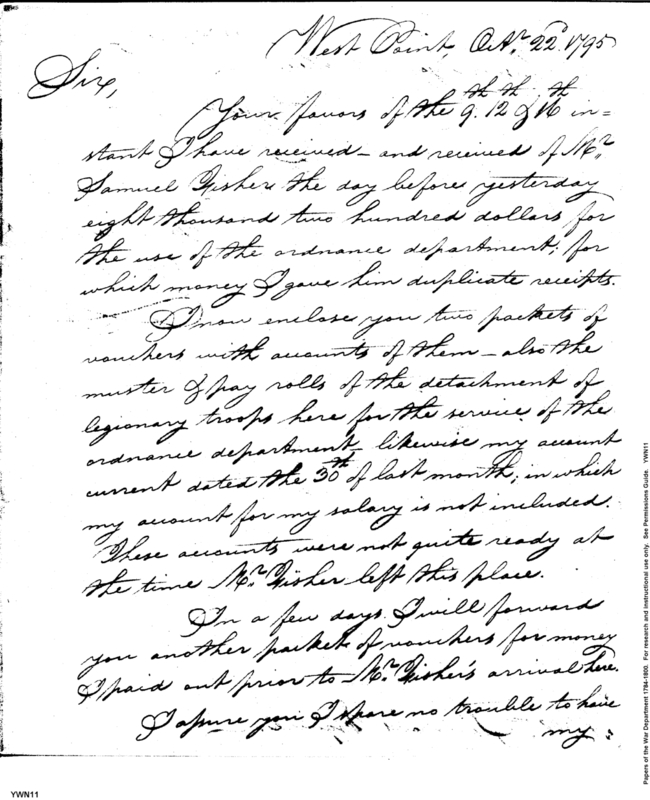 West Point, Octr. 22d. 1795
Sir,
Your favors of the 9th. 12th & 16th in=
stant I have received – and received of Mr.
Samuel Fisher the day before yesterday
eight thousand two hundred dollars for
the use of the ordnance department; for
which money I gave him duplicate receipts.
I now enclose you two packets of
vouchers with accounts of them – also the
muster & pay rolls of the detachment of
legionary troops here for the service of the
ordnance department – likewise my account
current dated the 30th of last month; in which
my account for my salary is not included.
These accounts were not quite ready at
the time Mr. Fisher left this place.
In a few days I will forward
you another packet of vouchers for money
I paid out prior to Mr. Fisher's arrival here.
I assure you I spare no trouble to have
my
YWN11
Papers of the War Department 1784-1800. For research and instructional use only. See Permissions Guide. YWN11